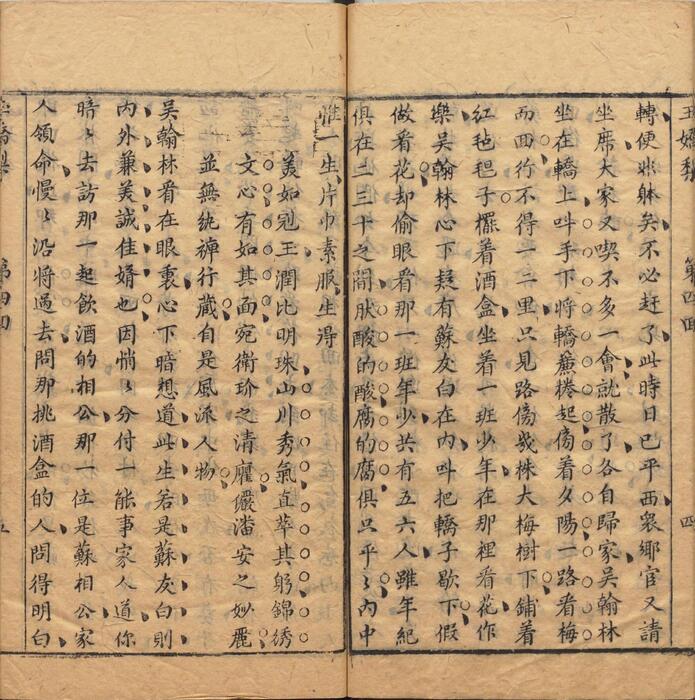 玉嬌梨　第四回　四
轉便非躰矣不必赶了此時日已平西衆鄉官又請
坐席大家又喫不多一會就散了各自歸家吳翰林
坐在轎上叫手下將轎簾捲起傍着夕陽一路看梅
而回行不得一二里只見路傍幾株大梅樹下鋪着
紅毡毯子擺着酒盒坐着一班少年在那裡看花作
樂吳翰林心下疑有蘇友白在內叫把轎子歇下假
做看花却偷眼看那一班年少共有五六人雖年紀
俱在二三十之間肰酸的酸腐的腐俱只平〻內中
惟一生片巾素服生得
美如冠玉潤比明珠山川秀氣直萃其躬錦綉
文心有如其面宛衛玠之清臞儼潘安之妙麗
並無紈褲行藏自是風派人物
吳翰林看在眼裏心下暗想道此生若是蘇友白則
內外兼美誠佳婿也因悄〻分付一能事家人道你
暗〻去訪那一起飲酒的相公那一位是蘇相公家
人領命慢〻沿將過去問那挑酒盒的人問得明白
玉嬌梨　第四回　五